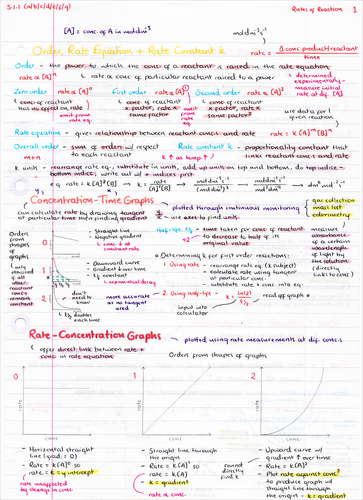 5.1.1 (a/b/c/d/e/f/g)
Rates of Reaction 1
[A] = conc. of A in moldm⁻³
moldm⁻³s⁻¹
Order, Rate Equation + Rate Constant k
rate = Δconc product/reactant
time
Order - the power to which the conc. of a reactant is raised in the rate equation
rate ∝ [A]ⁿ
rate ∝ conc of particular reactant raised to a power
determined experimentally - measure initial rate at dif. [A]
Zero order rate ∝ [A]⁰
First order rate ∝ [A]¹
Second order rate ∝ [A]²
conc of reactant has no effect on rate
omit from rate eq.
conc of reactant x factor, rate x same factor
conc of reactant x factor, rate x same factor²
use data for 1 given reaction
Rate equation - gives relationship between reactant concs and rate rate = k[A]ᵐ[B]ⁿ
Overall order - sum of orders w/ respect to each reactant
m+n
Rate constant k - proportionality constant that links reactant concs and rate
k ↑ as temp. ↑
k units - rearrange rate eq., substitute in units, add up units on top and bottom, do top indice - bottom indice, write out w/ + indices first
e.g. rate = k[A]²[B]
Concentration-Time Graphs
plotted through continuous monitoring
gas collection
mass lost
colorimetry
can calculate rate by drawing tangent at particular time then finding gradient
use axes to find units
Orders from shapes of graphs
only obtained if all other reactant concs remain constant
0
- Straight line
- Negative gradient
conc ↓ at constant rate
1
- Downward curve
- Gradient ↓ over time
- t½ constant
exponential decay
2
don't need to know
t½ doubles each time
Half-life t½ - time taken for conc of reactant to decrease to half of its original value
measure absorbance of a certain wavelength of light by the solution (directly links to conc)
Determining k for first order reactions:
1. Using rate - rearrange rate eq. (k subject)
- calculate rate using tangent at particular conc.
- substitute rate + conc into eq.
more accurate as no tangent used
2. Using half-life
k = ln(2)
t½
read off graph
input into calculator
Rate-Concentration Graphs
plotted using rate measurements at dif. concs
offer direct link between rate + conc in rate equation
Orders from shapes of graphs
0
1
2
conc
conc
conc
- Horizontal straight line (grad = 0)
- Rate = k[A]⁰ so rate = k = y intercept
rate unaffected by change in conc
- Straight line through the origin
- Rate = k[A]¹ so rate = k[A]
- k = gradient
rate ∝ conc
- Upward curve w/ gradient ↑ over time
- Rate = k[A]²
cannot directly find k
- Plot rate against conc² to produce graph w/ straight line through the origin - k = gradient